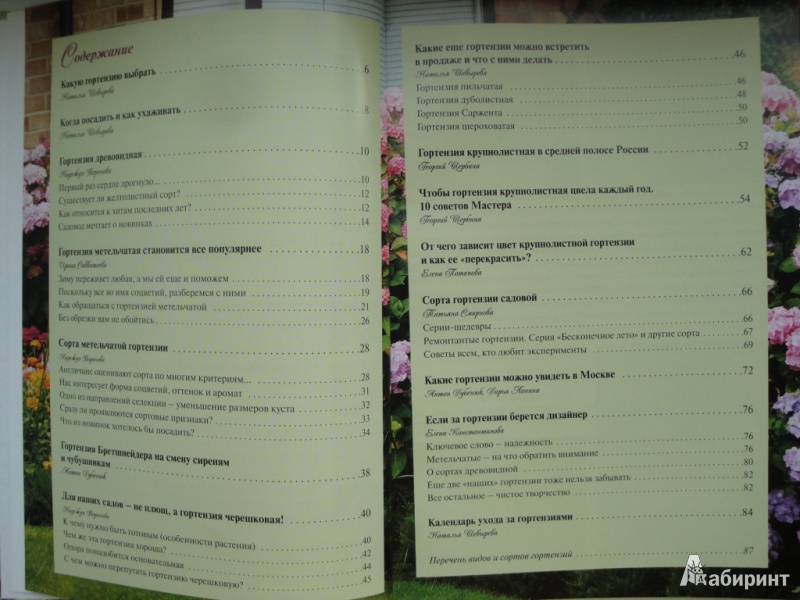 Содержание
Какую гортензию выбрать 6
Наталья Шевырева
Когда посадить и как ухаживать 8
Наталья Шевырева
Гортензия древовидная 10
Надежда Воронова
Первый раз сердце дрогнуло... 10
Существует ли желтолистный сорт? 12
Как относится к хитам последних лет? 12
Садовод мечтает о новинках 14
Гортензия метельчатая становится все популярнее 18
Зиму переживет любая, а мы ей еще и поможем 18
Поскольку все во имя соцветий, разберемся с ними 19
Как обращаться с гортензией метельчатой 21
Без обрезки вам не обойтись 26
Сорта метельчатой гортензии 28
Надежда Воронова
Англичане оценивают сорта по многим критериям... 28
Нас интересует форма соцветий, оттенок и аромат 31
Одно из направлений селекции – уменьшение размеров куста 32
Сразу ли проявляются сортовые признаки? 33
Что из новинок хотелось бы посадить? 34
Гортензия Бретшнейдера на смену сиреням
и чубушникам 38
Антон Дубенюк
Для наших садов – не плющ, а гортензия черешковая! 40
Надежда Воронова
К чему нужно быть готовым (особенности растения) 40
Чем же эта гортензия хороша? 42
Опора понадобится основательная 44
С чем можно перепутать гортензию черешковую? 45
Какие еще гортензии можно встретить
в продаже и что с ними делать 46
Наталья Шевырева
Гортензия пильчатая 46
Гортензия дуболистная 48
Гортензия Саржента 50
Гортензия шероховатая 50
Гортензия крупнолистная в средней полосе России 52
Георгий Щербина
Чтобы гортензия крупнолистная цвела каждый год.
10 советов Мастера 54
Георгий Щербина
От чего зависит цвет крупнолистной гортензии
и как ее «перекрасить»? 62
Елена Потапова
Сорта гортензии садовой 66
Татьяна Смирнова
Серии-шедевры 66
Ремонтантые гортензии. Серия «Бесконечное лето» и другие сорта 67
Советы всем, кто любит эксперименты 69
Какие гортензии можно увидеть в Москве 72
Антон Дубенюк, Дарья
Если за гортензии берется дизайнер 76
Елена Константинова
Ключевое слово – надежность 76
Метельчатые – на что обратить внимание 76
О сортах древовидной 80
Еще две «наших» гортензии тоже нельзя забывать 82
Все остальное – чистое творчество 82
Календарь ухода за гортензиями 84
Наталья Шевырева
Перечень видов и сортов гортензий 87
Лабиринт